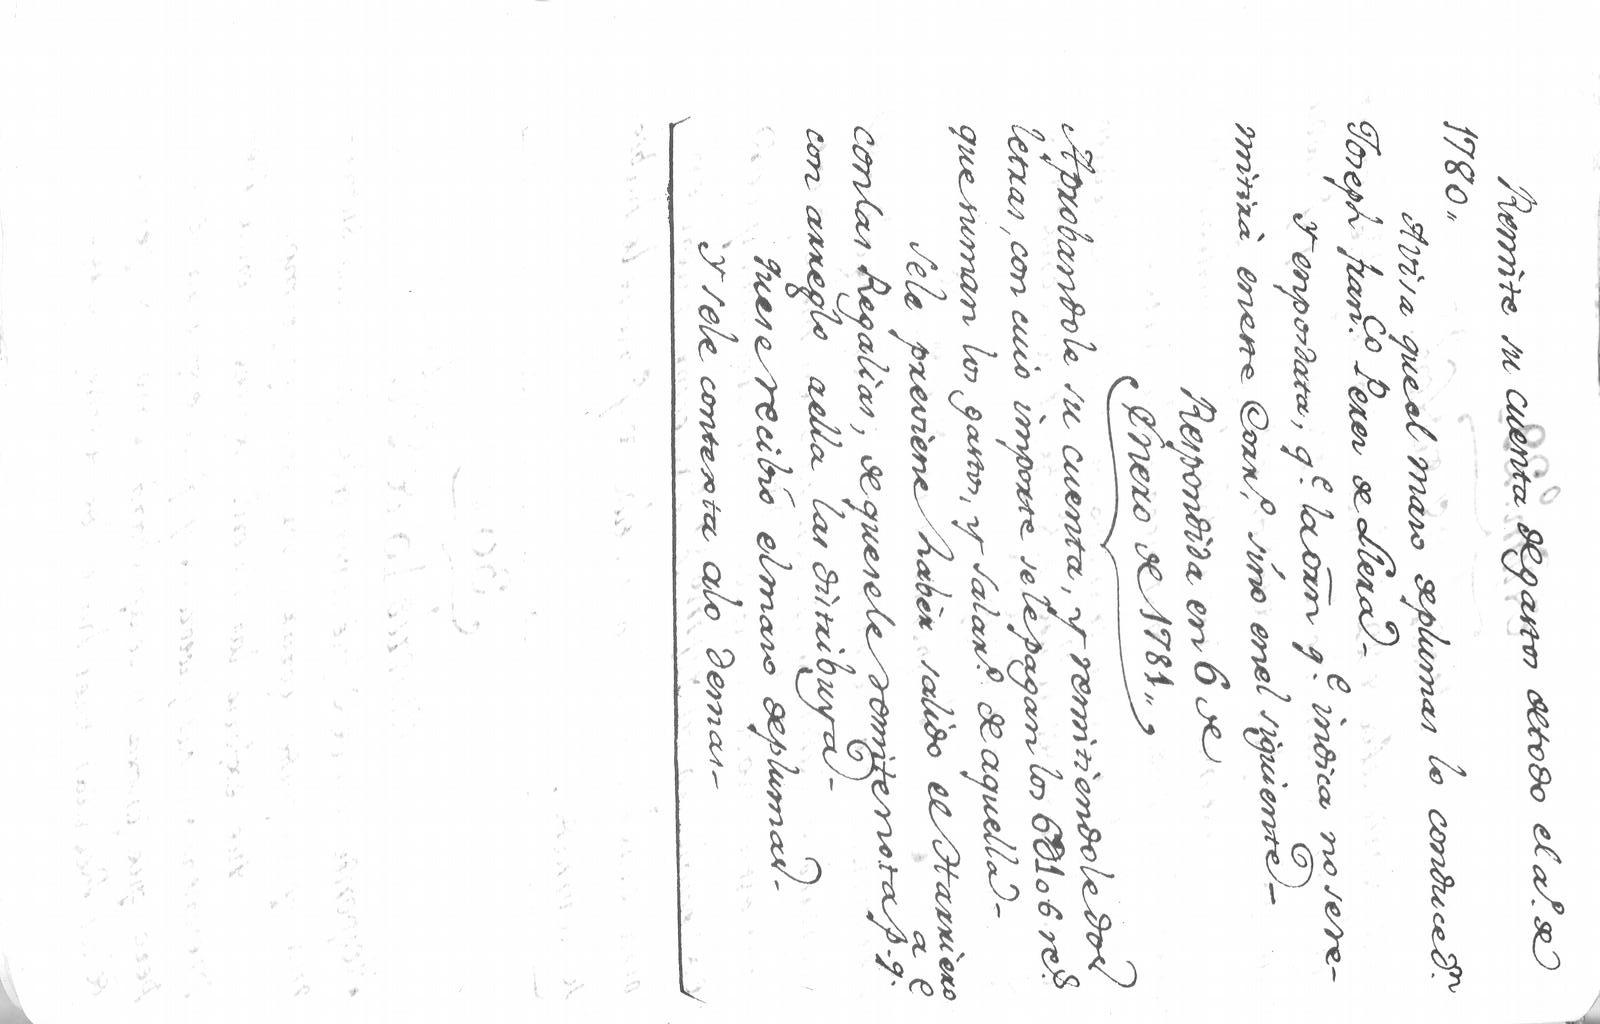 Remite su cuenta de gastos de todo el a.º de
1780,,
Avisa que el mazo de plumas lo conduce d.n
Joseph fran.co Perez de Llera -
Y en posdata, q.e la orn q.e indica no se re-
mitirá en este Corr.º, sino en el siguiente -
Respondida en 6 de
Enero de 1781,,
Aprobandole su cuenta, y remitiendole dos
letras, con cuio importe se le pagan los 6
que suman los gastos, y salar.º de aquella -
Sele previene haber salido el Harriero
con las Regalias, de que se le remite nota p.a q.e
con arreglo aella las distribuya -
Que se recibió el mazo de plumas -
Y sele contexta alo demas -